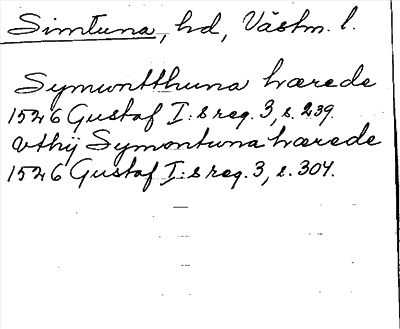 Simtuna, hd, Västm. l.
Symontthuna hærede
1526 Gustaf I:s reg. 3, s. 239.
vthij Symontuna hærede
1526 Gustaf I:s reg. 3, s. 304.